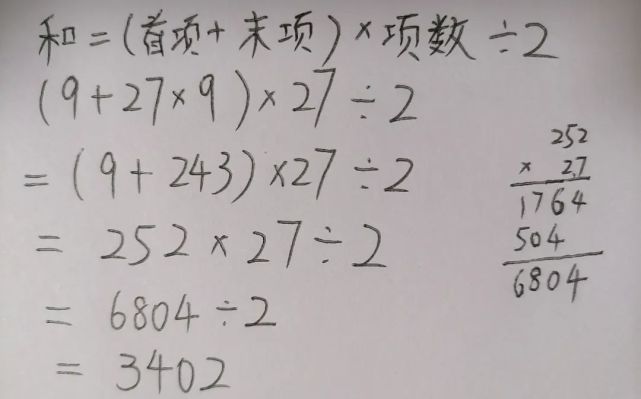 和=(首项+末项)×项数÷2
(9+27×9)×27÷2
=(9+243)×27÷2
=252×27÷2
=6804÷2
=3402
252
× 27
1764
504
6804